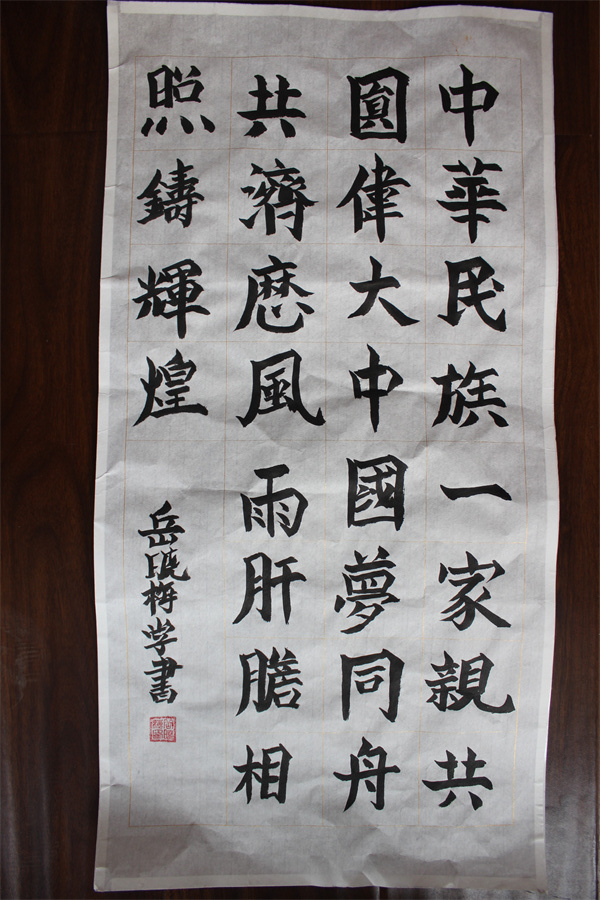 中華民族一家親共
圓偉大中國夢同舟
共濟歷風雨肝膽相
照鑄輝煌
岳曉梅学書